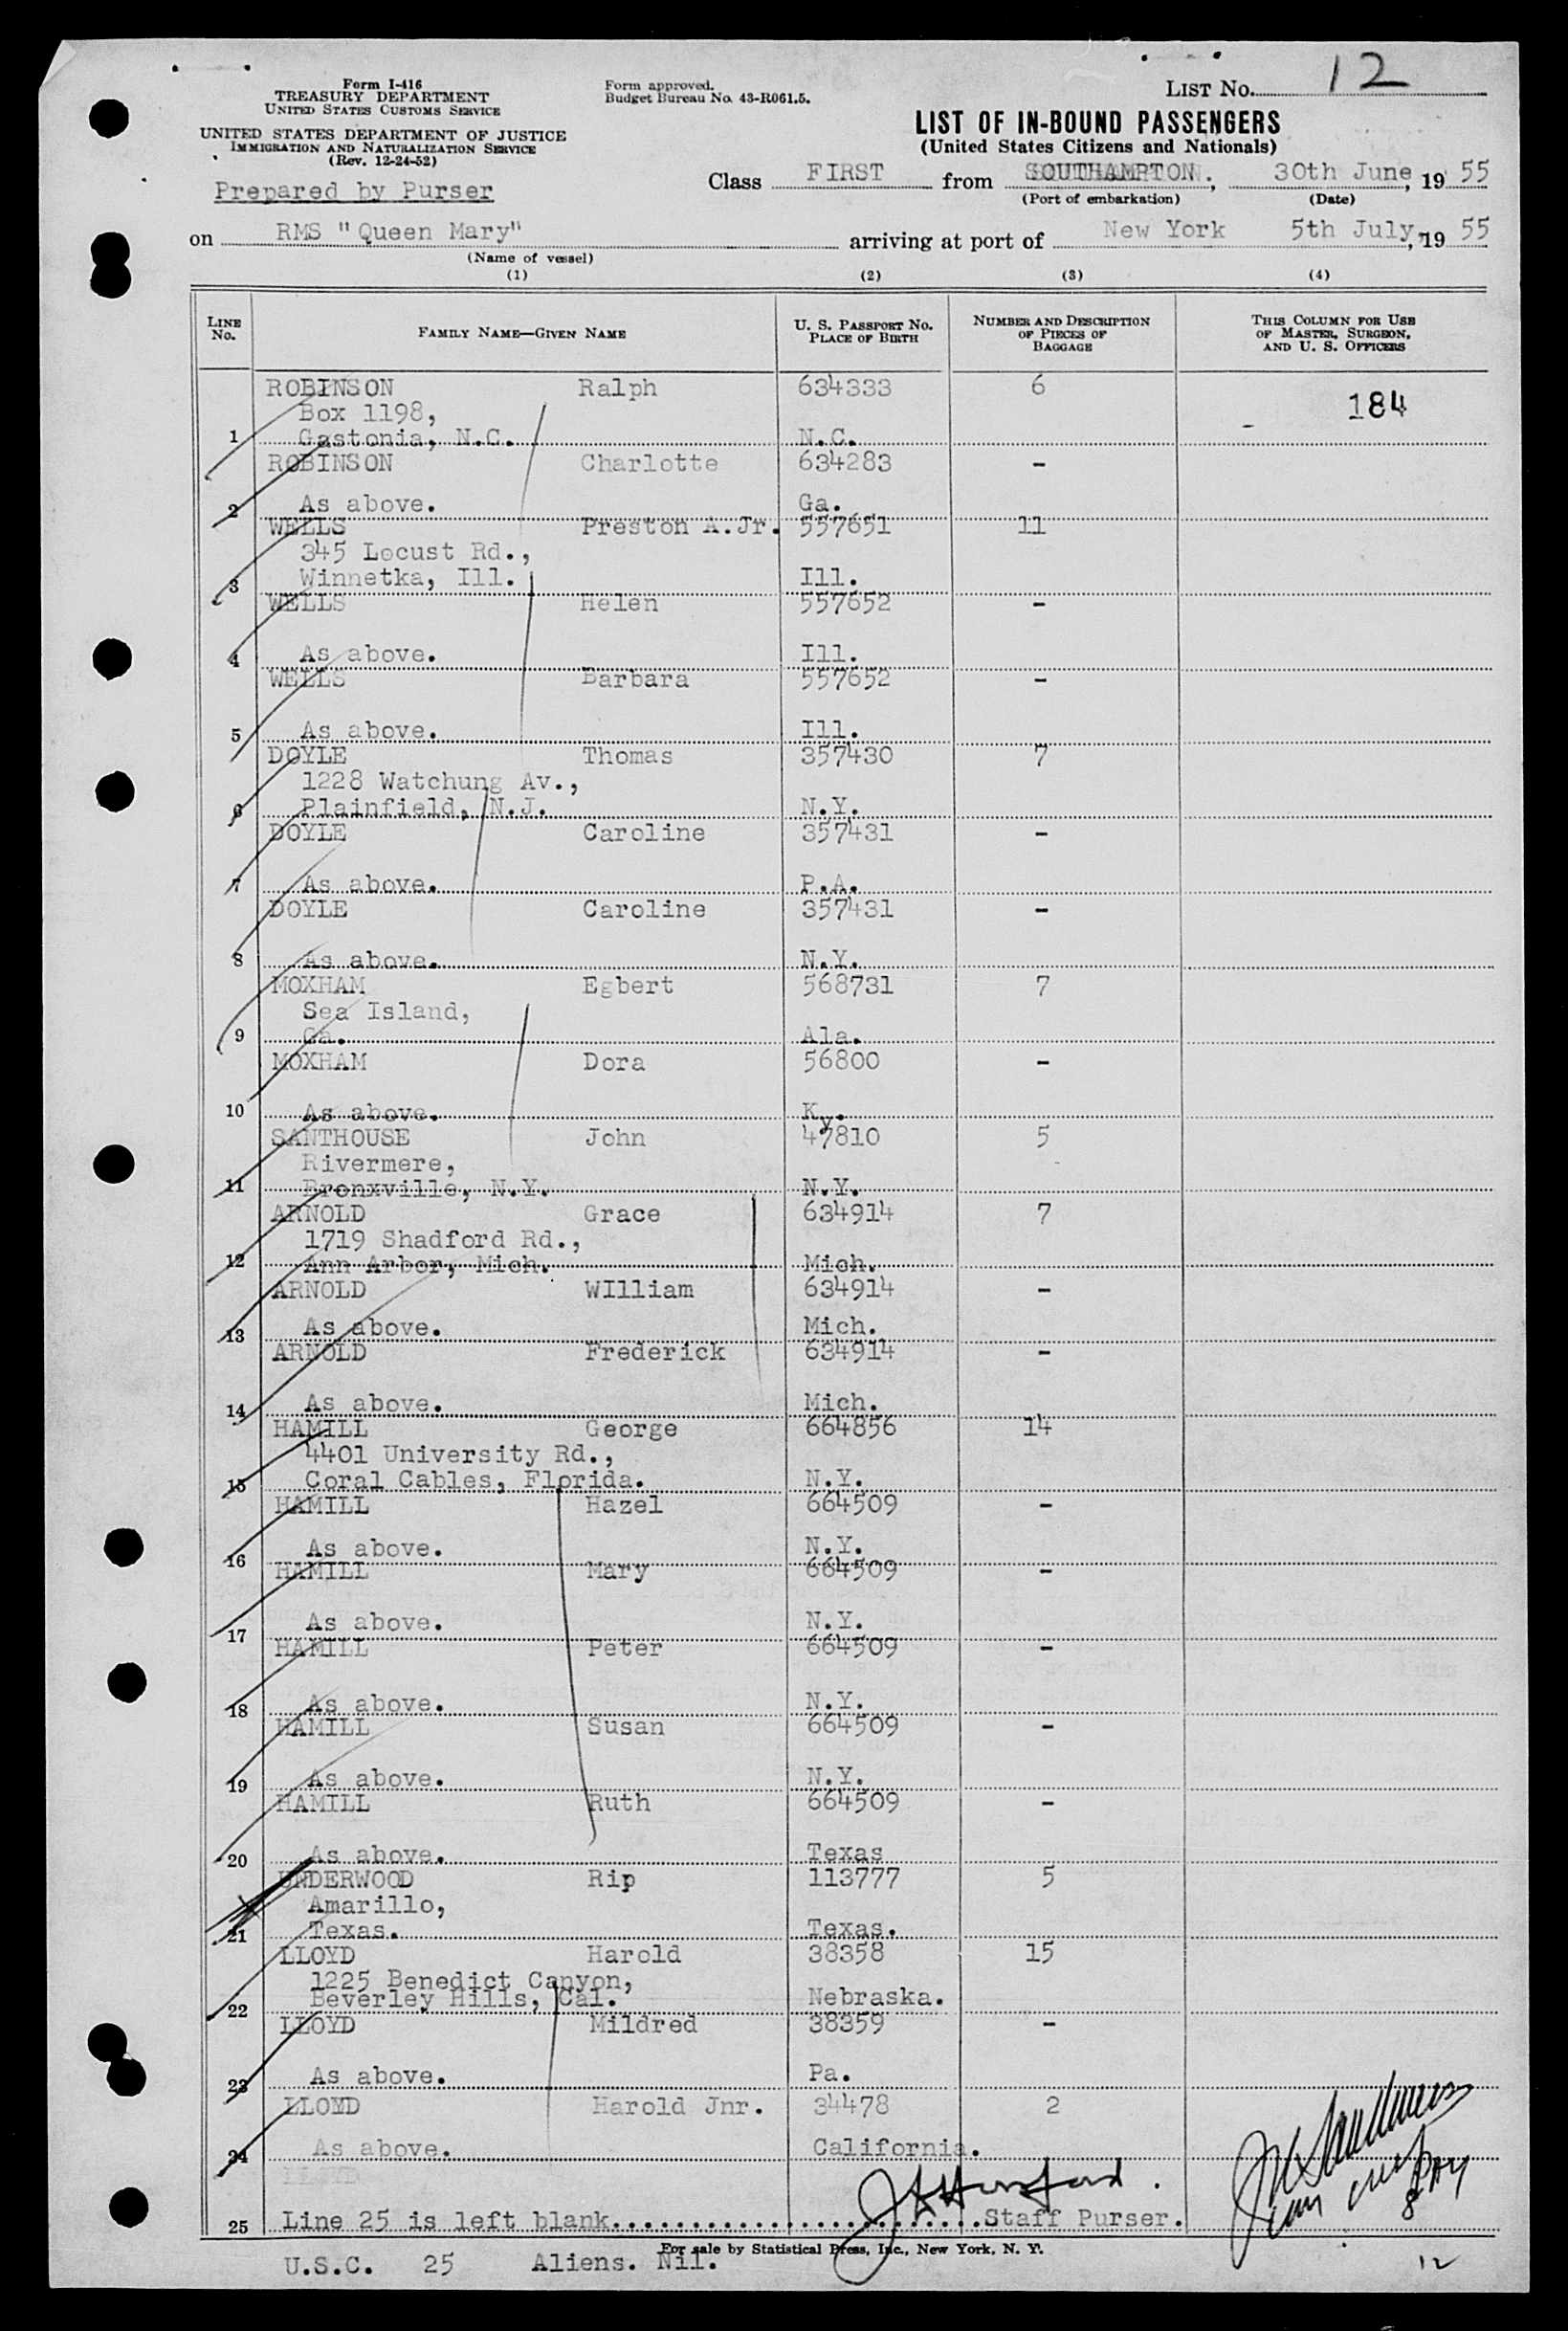 Form I-416
TREASURY DEPARTMENT
UNITED STATES CUSTOMS SERVICE
UNITED STATES DEPARTMENT OF JUSTICE
IMMIGRATION AND NATURALIZATION SERVICE
(Rev. 12-24-52)
Prepared by Purser
Form approved.
Budget Bureau No. 43-R061.5.
LIST No. 12
LIST OF IN-BOUND PASSENGERS
(United States Citizens and Nationals)
Class FIRST from SOUTHAMPTON., 30th June, 19 55
(Port of embarkation) (Date)
on RMS "Queen Mary" arriving at port of New York 5th July, 19 55
(Name of vessel)
(1) (2) (3) (4)
LINE No. FAMILY NAME—GIVEN NAME U. S. PASSPORT No. PLACE OF BIRTH NUMBER AND DESCRIPTION OF PIECES OF BAGGAGE THIS COLUMN FOR USE OF MASTER, SURGEON, AND U. S. OFFICERS
ROBINSON Ralph 634333 6
Box 1198, 184
1 Gastonia, N.C. N.C.
ROBINSON Charlotte 634283 -
2 As above. Ga.
WELLS Preston A.Jr. 557651 11
345 Locust Rd.,
3 Winnetka, Ill. Ill.
WELLS Helen 557652 -
4 As above. Ill.
WELLS Barbara 557652 -
5 As above. Ill.
DOYLE Thomas 357430 7
1228 Watchung Av.,
6 Plainfield, N.J. N.Y.
DOYLE Caroline 357431 -
7 As above. P.A.
DOYLE Caroline 357431 -
8 As above. N.Y.
MOXHAM Egbert 568731 7
Sea Island,
9 Ga. Ala.
MOXHAM Dora 56800 -
10 As above. Ky.
SANTHOUSE John 47810 5
Rivermere,
11 Bronxville, N.Y. N.Y.
ARNOLD Grace 634914 7
1719 Shadford Rd.,
12 Ann Arbor, Mich. Mich.
ARNOLD WIlliam 634914 -
13 As above. Mich.
ARNOLD Frederick 634914 -
14 As above. Mich.
HAMILL George 664856 14
4401 University Rd.,
15 Coral Cables, Florida. N.Y.
HAMILL Hazel 664509 -
16 As above. N.Y.
HAMILL Mary 664509 -
17 As above. N.Y.
HAMILL Peter 664509 -
18 As above. N.Y.
HAMILL Susan 664509 -
19 As above. N.Y.
HAMILL Ruth 664509 -
20 As above. Texas
UNDERWOOD Rip 113777 5
Amarillo,
21 Texas. Texas.
LLOYD Harold 38358 15
1225 Benedict Canyon,
22 Beverley Hills, Cal. Nebraska.
LLOYD Mildred 38359 -
23 As above. Pa.
LLOYD Harold Jnr. 34478 2
24 As above. California.
LLOYD
25 Line 25 is left blank........................Staff Purser.
For sale by Statistical Press, Inc., New York, N. Y.
U.S.C. 25 Aliens. Nil.
12